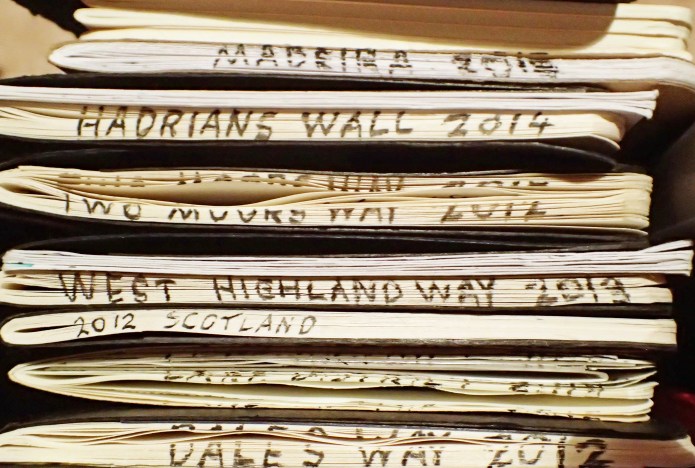 MADEIRA
HADRIANS WALL 2014
TWO MOORS WAY 2012
WEST HIGHLAND WAY 2013
2012 SCOTLAND
DALES WAY 2012